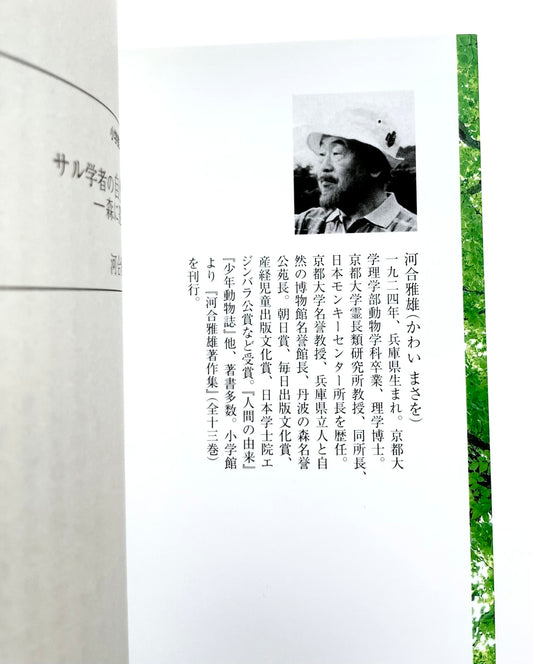 河合雅雄(かわい まさを)
一九二四年、兵庫県生まれ。京都大
学理学部動物学科卒業、理学博士。
京都大学霊長類研究所教授、同所長、
日本モンキーセンター所長を歴任。
京都大学名誉教授、兵庫県立人と自
然の博物館名誉館長、丹波の森名誉
公苑長。朝日賞、毎日出版文化賞、
産経児童出版文化賞、日本学士院エ
ジンバラ公賞など受賞。『人間の由来』
『少年動物誌』他、著書多数。小学館
より『河合雅雄著作集』(全十三巻)
を刊行。
サル学者の自
―森に
河合